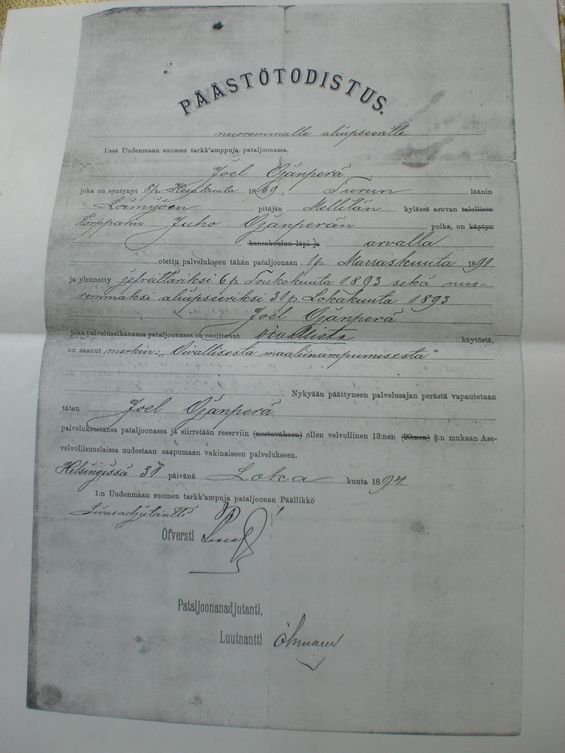 PÄÄSTÖTODISTUS.
nuoremmalle aliupseerille
I:ssä Uudenmaan suomen tarkk'ampuja pataljoonassa.
Joel Ojanperä
joka on syntynyt 8 p. Heinäkuuta 1869. Turun läänin
Loimijoen pitäjän Mellilän kylässä asuvan talollisen
torpparin Juho Ojanperän poika, on käytyn
kansakoulun läpi ja arvalla
otettu palvelukseen tähän pataljoonaan 1 p. Marraskuuta 1890
ja ylennetty gefreitariksi 6 p. Toukokuuta 1893 sekä nuo-
remmaksi aliupseeriksi 30 p. Lokakuuta 1893
Joel Ojanperä
joka palvelusaikanansa pataljoonassa on osoittanut oivallista käytöstä,
on saanut merkin: „Oivallisesta maaliinampumisesta"
Nykyään päättyneen palvelusajan perästä vapautetaan
täten Joel Ojanperä
palveluksestansa pataljoonassa ja siirretään reserviin (nostoväkeen) ollen velvollinen 13:nen (20:nen) §:n mukaan Ase-
velvollisuuslaissa uudestaan saapumaan vakinaiseen palvelukseen.
Helsingissä päivänä Loka kuuta 1894
I:n Uudenmaan suomen tarkk'ampuja pataljoonan Päällikkö
Sivusadjutantti
Öfversti
Pataljoonanadjutanti,
Luutnantti Öhman